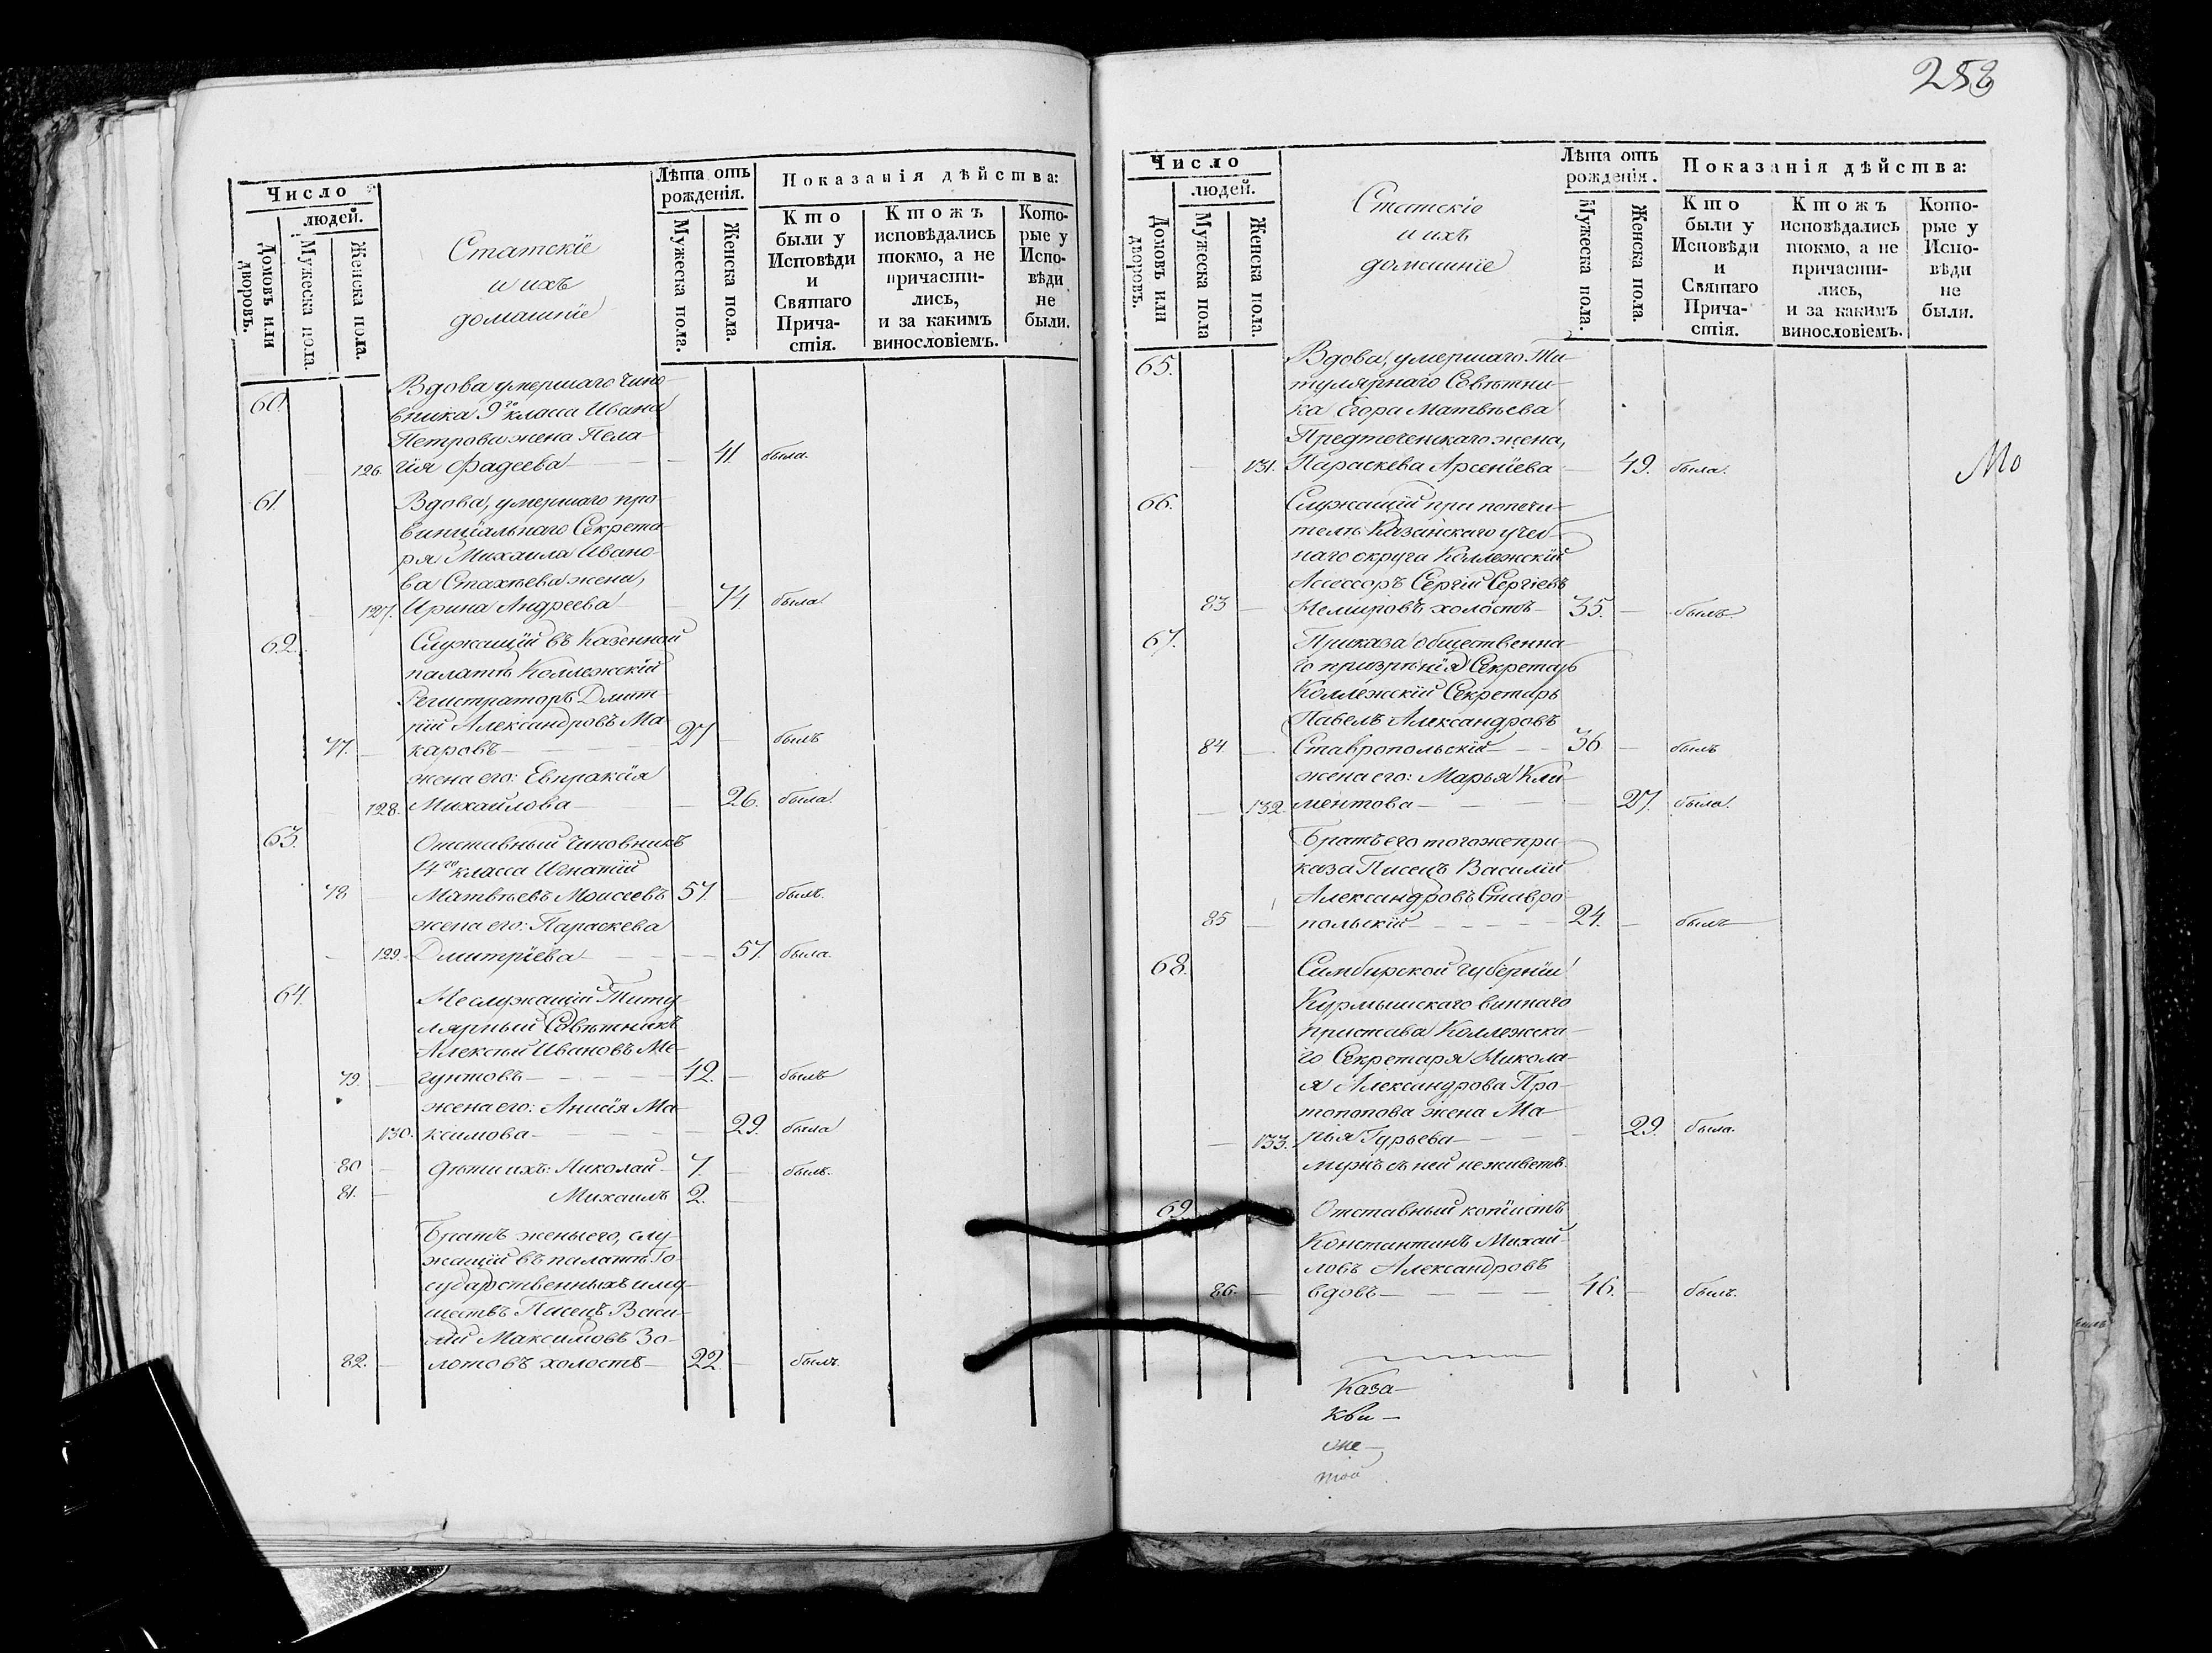 Число
людей.
Домовъ или дворовъ.
Мужеска пола.
Женска пола.
Статскіе
и ихъ
домашніе
Лѣта отъ
рожденія.
Мужеска пола.
Женска пола.
Показанія дѣйства:
Кто
были у
Исповѣди
и
Святаго
Прича-
стія.
Ктожъ
исповѣдались
токмо, а не
причасти-
лись,
и за какимъ
винословіемъ.
Кото-
рые у
Испо-
вѣди
не
были.
60. Вдова умершаго чино-
вника 9го класса Ивана
Петрова жена Пела-
126. гія Фадеева — 41. была.
61. Вдова, умершаго про-
винціальнаго Секрета-
ря Михаила Ивано-
ва Стахѣева жена,
127. Ирина Андреева — 74. была.
62. Служащій въ Казенной
палатѣ Коллежскій
Регистраторъ Дмит-
рій Александровъ Ма-
77. — каровъ — 27 — былъ
жена его: Евпраксія
128. Михайлова — 26. была.
63. Отставный чиновникъ
14го класса Игнатій
78 — Матвѣевъ Моисеевъ 57. — былъ.
жена его: Параскева
129. Дмитріева — 57. была.
64. Неслужащій Титу-
лярный Совѣтникъ
Алексѣй Ивановъ Ме-
79. — гунтовъ — 42. — былъ
жена его: Анисія Ма-
130. ксимова — 29. была
80 — дѣти ихъ: Николай — 7. — былъ.
81. — Михаилъ 2. —
Братъ жены его, слу-
жащій въ палатѣ Го-
сударственныхъ иму-
ществъ Писецъ Васи-
лій Максимовъ Зо-
82. — лотовъ холостъ — 22. — былъ.
258
Число
людей.
Домовъ или дворовъ.
Мужеска пола
Женска пола.
Статскіе
и ихъ
домашніе
Лѣта отъ
рожденія.
Мужеска пола.
Женска пола.
Показанія дѣйства:
Кто
были у
Исповѣди
и
Святаго
Прича-
стія.
Ктожъ
исповѣдались
токмо, а не
причасти-
лись,
и за какимъ
винословіемъ.
Кото-
рые у
Испо-
вѣди
не
были.
65. Вдова, умершаго Ти-
тулярнаго Совѣтни-
ка Егора Матвѣева
Предтеченскаго жена,
131. Параскева Арсеніева — 49. была.
Мо
66. Служащій при попечи-
телѣ Казанскаго учеб-
наго округа Коллежскій
Ассессоръ Сергій Сергіевъ
83 — Немировъ холостъ — 35. — былъ.
67. Приказа общественна-
го призрѣнія Секретарь
Коллежскій Секретарь
Павелъ Александровъ
84 — Ставропольскій — 36 — былъ
жена его: Марья Кли-
132. ментова — 27. была.
Братъ его тогоже при-
каза Писецъ Василій
Александровъ Ставро-
85 — польскій — 24. — былъ
68. Симбирской губерніи
Курмышскаго виннаго
пристава Коллежска-
го Секретаря Никола-
я Александрова Про-
топопова жена Ма-
133. рья Гурьева — 29. была.
мужъ съ ней неживетъ.
69. Отставный копіистъ
Константинъ Михай-
ловъ Александровъ
86. — вдовъ — 46. — былъ.
Каза-